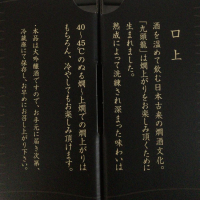 口上
酒を温めて飲む日本古来の燗酒文化。
「九頭龍」は燗上がりをお楽しみ頂くために
生まれました。
熟成によって洗練され深まった味わいは
40〜45℃のぬる燗〜上燗での燗上がりは
もちろん、冷やしてもお楽しみ頂けます。
・本品は大吟醸酒ですので、お手元に届き次第、
冷蔵庫にて保存し、お早めにお召し上がり下さい。